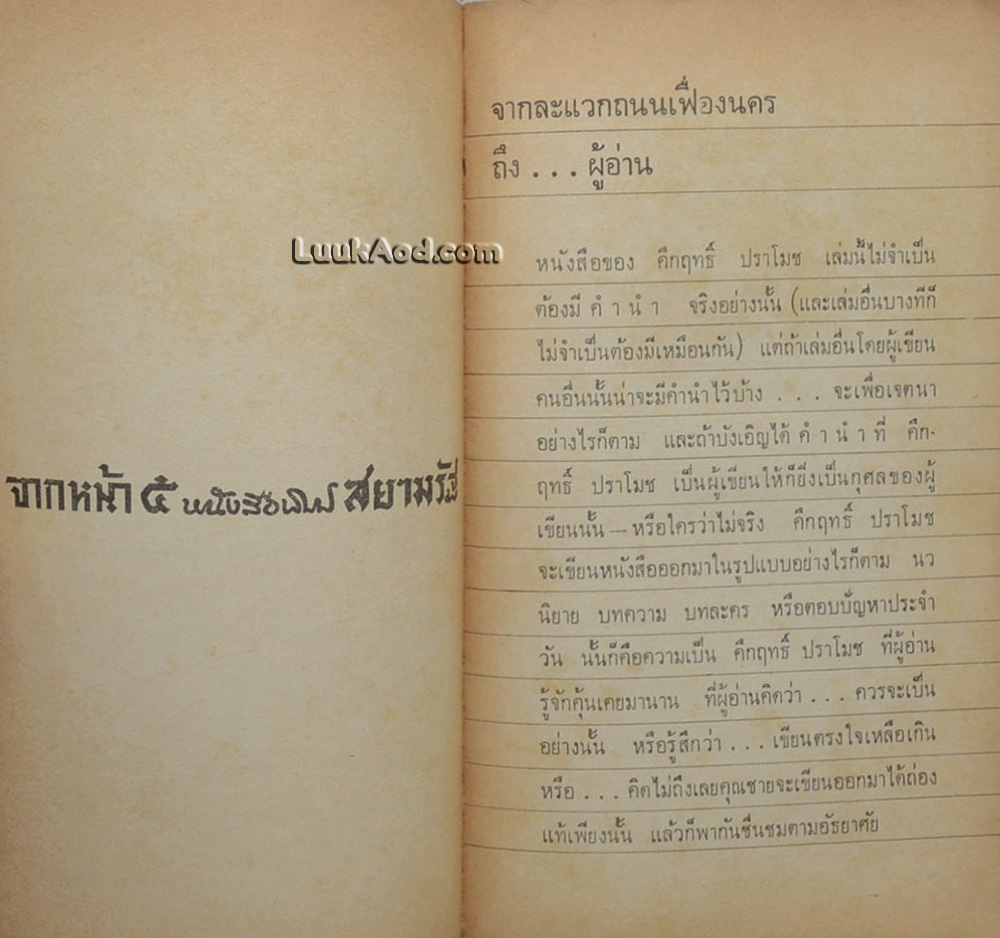 จากหน้า ๕ หนังสือพิมพ์ สยามรัฐ
LuukAod.com
จากละแวกถนนเฟื่องนคร
ถึง . . . ผู้อ่าน
หนังสือของ คึกฤทธิ์ ปราโมช เล่มนี้ไม่จำเป็น
ต้องมี คำ นำ จริงอย่างนั้น (และเล่มอื่นบางทีก็
ไม่จำเป็นต้องมีเหมือนกัน) แต่ถ้าเล่มอื่นโดยผู้เขียน
คนอื่นนั้นน่าจะมีคำนำไว้บ้าง . . . จะเพื่อเจตนา
อย่างไรก็ตาม และถ้าบังเอิญได้ คำ นำ ที่ คึก-
ฤทธิ์ ปราโมช เป็นผู้เขียนให้ก็ยิ่งเป็นกุศลของผู้
เขียนนั้น — หรือใครว่าไม่จริง คึกฤทธิ์ ปราโมช
จะเขียนหนังสือออกมาในรูปแบบอย่างไรก็ตาม นว
นิยาย บทความ บทละคร หรือตอบปัญหาประจำ
วัน นั้นก็คือความเป็น คึกฤทธิ์ ปราโมช ที่ผู้อ่าน
รู้จักคุ้นเคยมานาน ที่ผู้อ่านคิดว่า . . . ควรจะเป็น
อย่างนั้น หรือรู้สึกว่า . . . เขียนตรงใจเหลือเกิน
หรือ . . . คิดไม่ถึงเลยคุณชายจะเขียนออกมาได้ถ่อง
แท้เพียงนั้น แล้วก็พากันชื่นชมตามอัธยาศัย